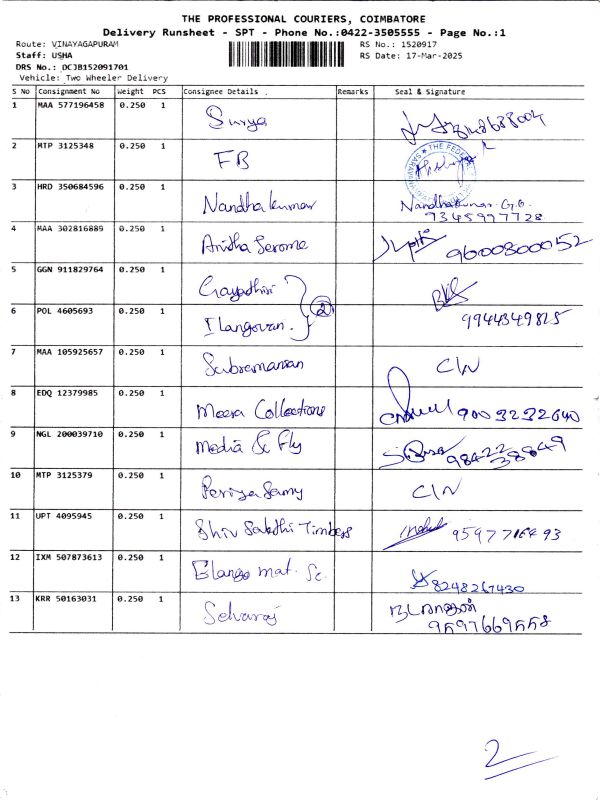 THE PROFESSIONAL COURIERS, COIMBATORE
Delivery Runsheet - SPT - Phone No.:0422-3505555 - Page No.:1
Route: VINAYAGAPURAM RS No.: 1520917
Staff: USHA RS Date: 17-Mar-2025
DRS No.: DCJB152091701
Vehicle: Two Wheeler Delivery
S No Consignment No Weight PCS Consignee Details . Remarks Seal & Signature
1 MAA 577196458 0.250 1 Surya
2 MTP 3125348 0.250 1 FB THE FEDERAL
3 HRD 350684596 0.250 1 Nandhakumar Nandhakumar G.
9345997728
4 MAA 302816889 0.250 1 Anitha Jerome 9600800052
5 GGN 911829764 0.250 1 Gayadhiri
6 POL 4605693 0.250 1 Ilangovan. 2 9944349815
7 MAA 105925657 0.250 1 Subramanian C/N
8 EDQ 12379985 0.250 1 Meera Collections 9003232640
9 NGL 200039710 0.250 1 Media & Fly 9842238849
10 MTP 3125379 0.250 1 Periyasamy C/N
11 UPT 4095945 0.250 1 Shiv Sakthi Timbers
12 IXM 507873613 0.250 1 Elango mat. Sc. 8248267430
13 KRR 50163031 0.250 1 Selvaraj
2